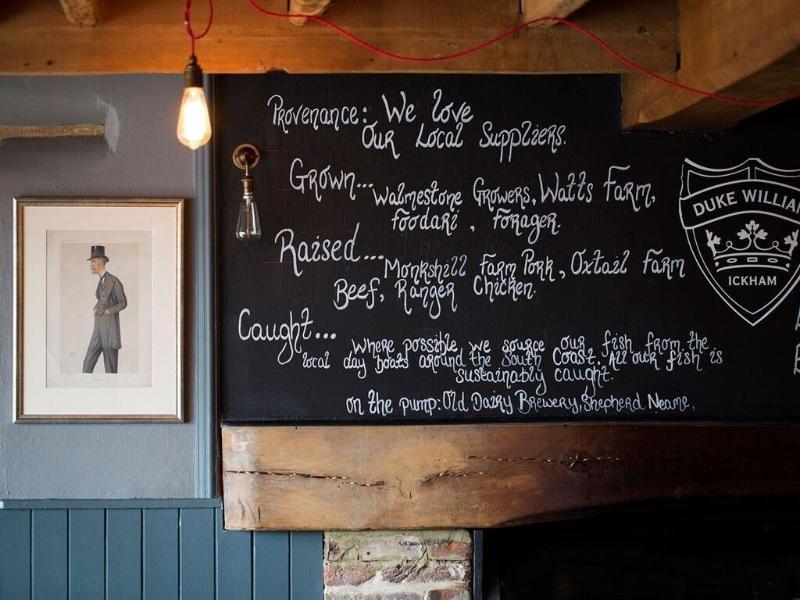 Provenance: We love
Our Local Suppliers.
Grown... Walmestone Growers, Watts Farm,
foodari, forager.
Raised... Monkshill Farm Pork, Oxtail Farm
Beef, Ranger Chicken.
Caught... where possible, we source our fish from the
local day boats around the South Coast. All our fish is
sustainably caught.
on the pump: Old Dairy Brewery, Shepherd Neame,
DUKE WILLIAM
ICKHAM